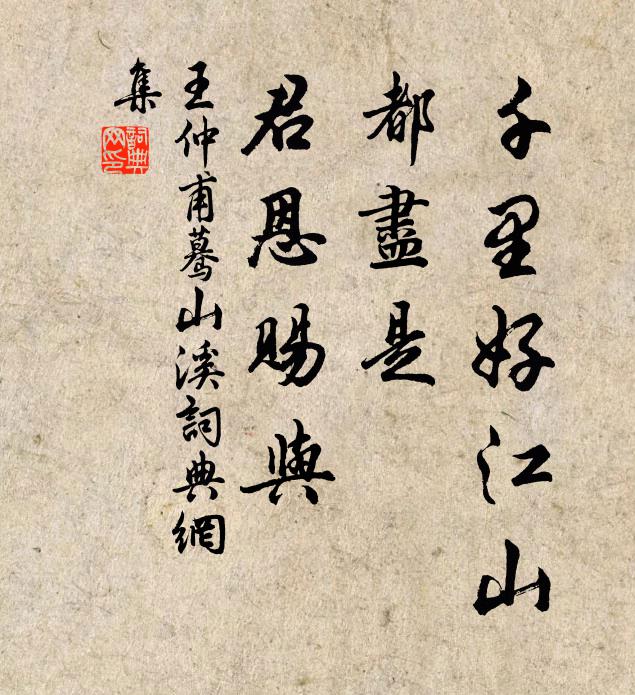 千里好江山
都盡是
君恩賜與
王仲甫驀山溪詞典網
集
詞典
網印